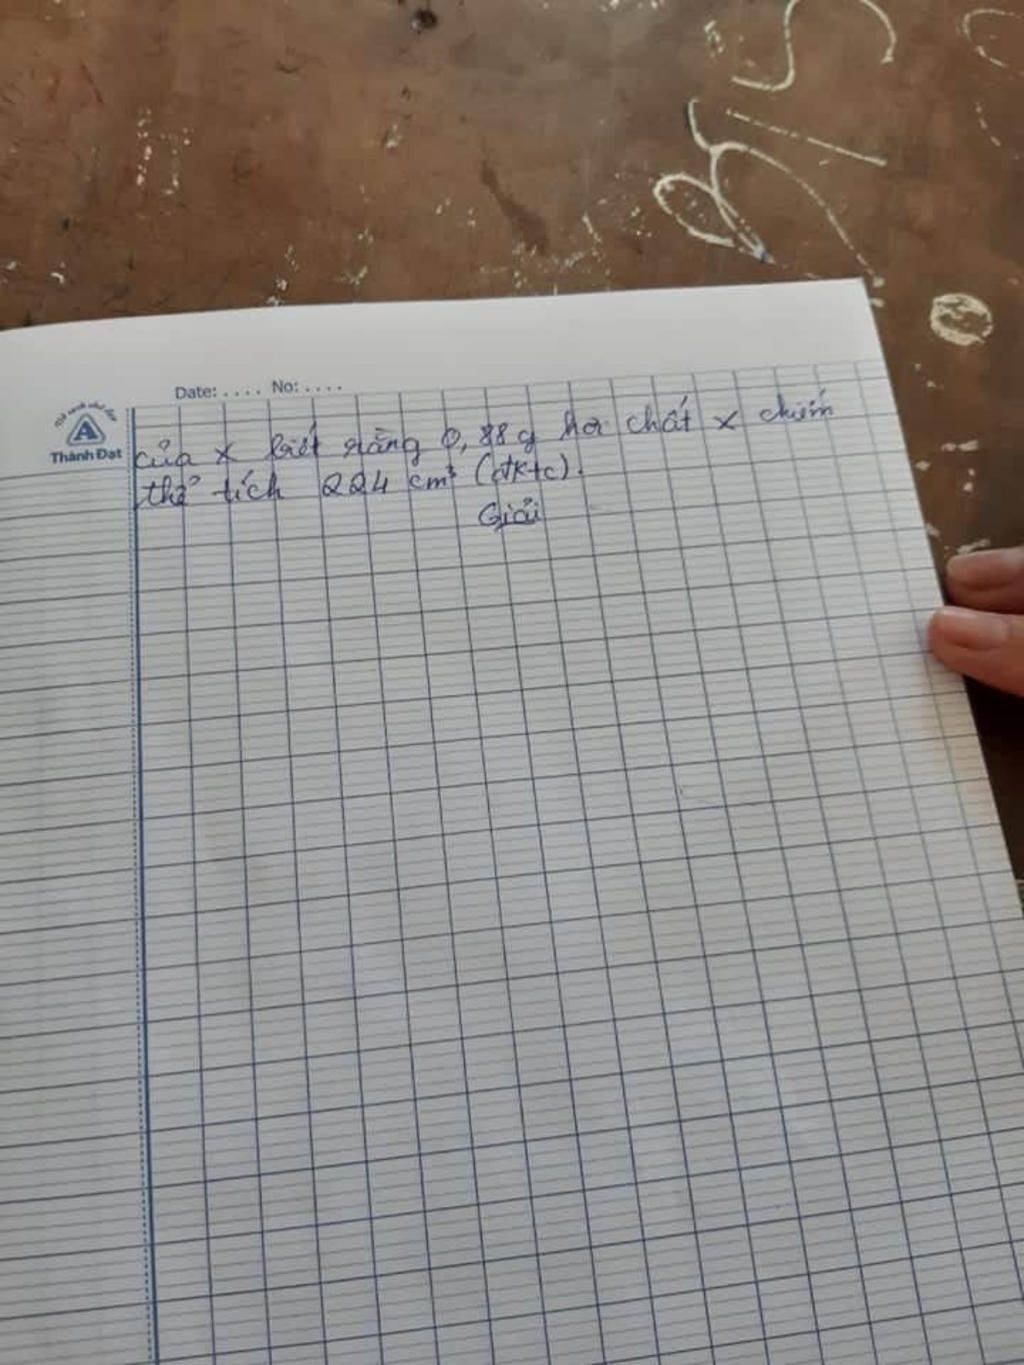 Date: .... No: ....
Thành Đạt
của X biết rằng 0,88g hơi chất X chiếm
thể tích 224 cm³ (đktc).
Giải